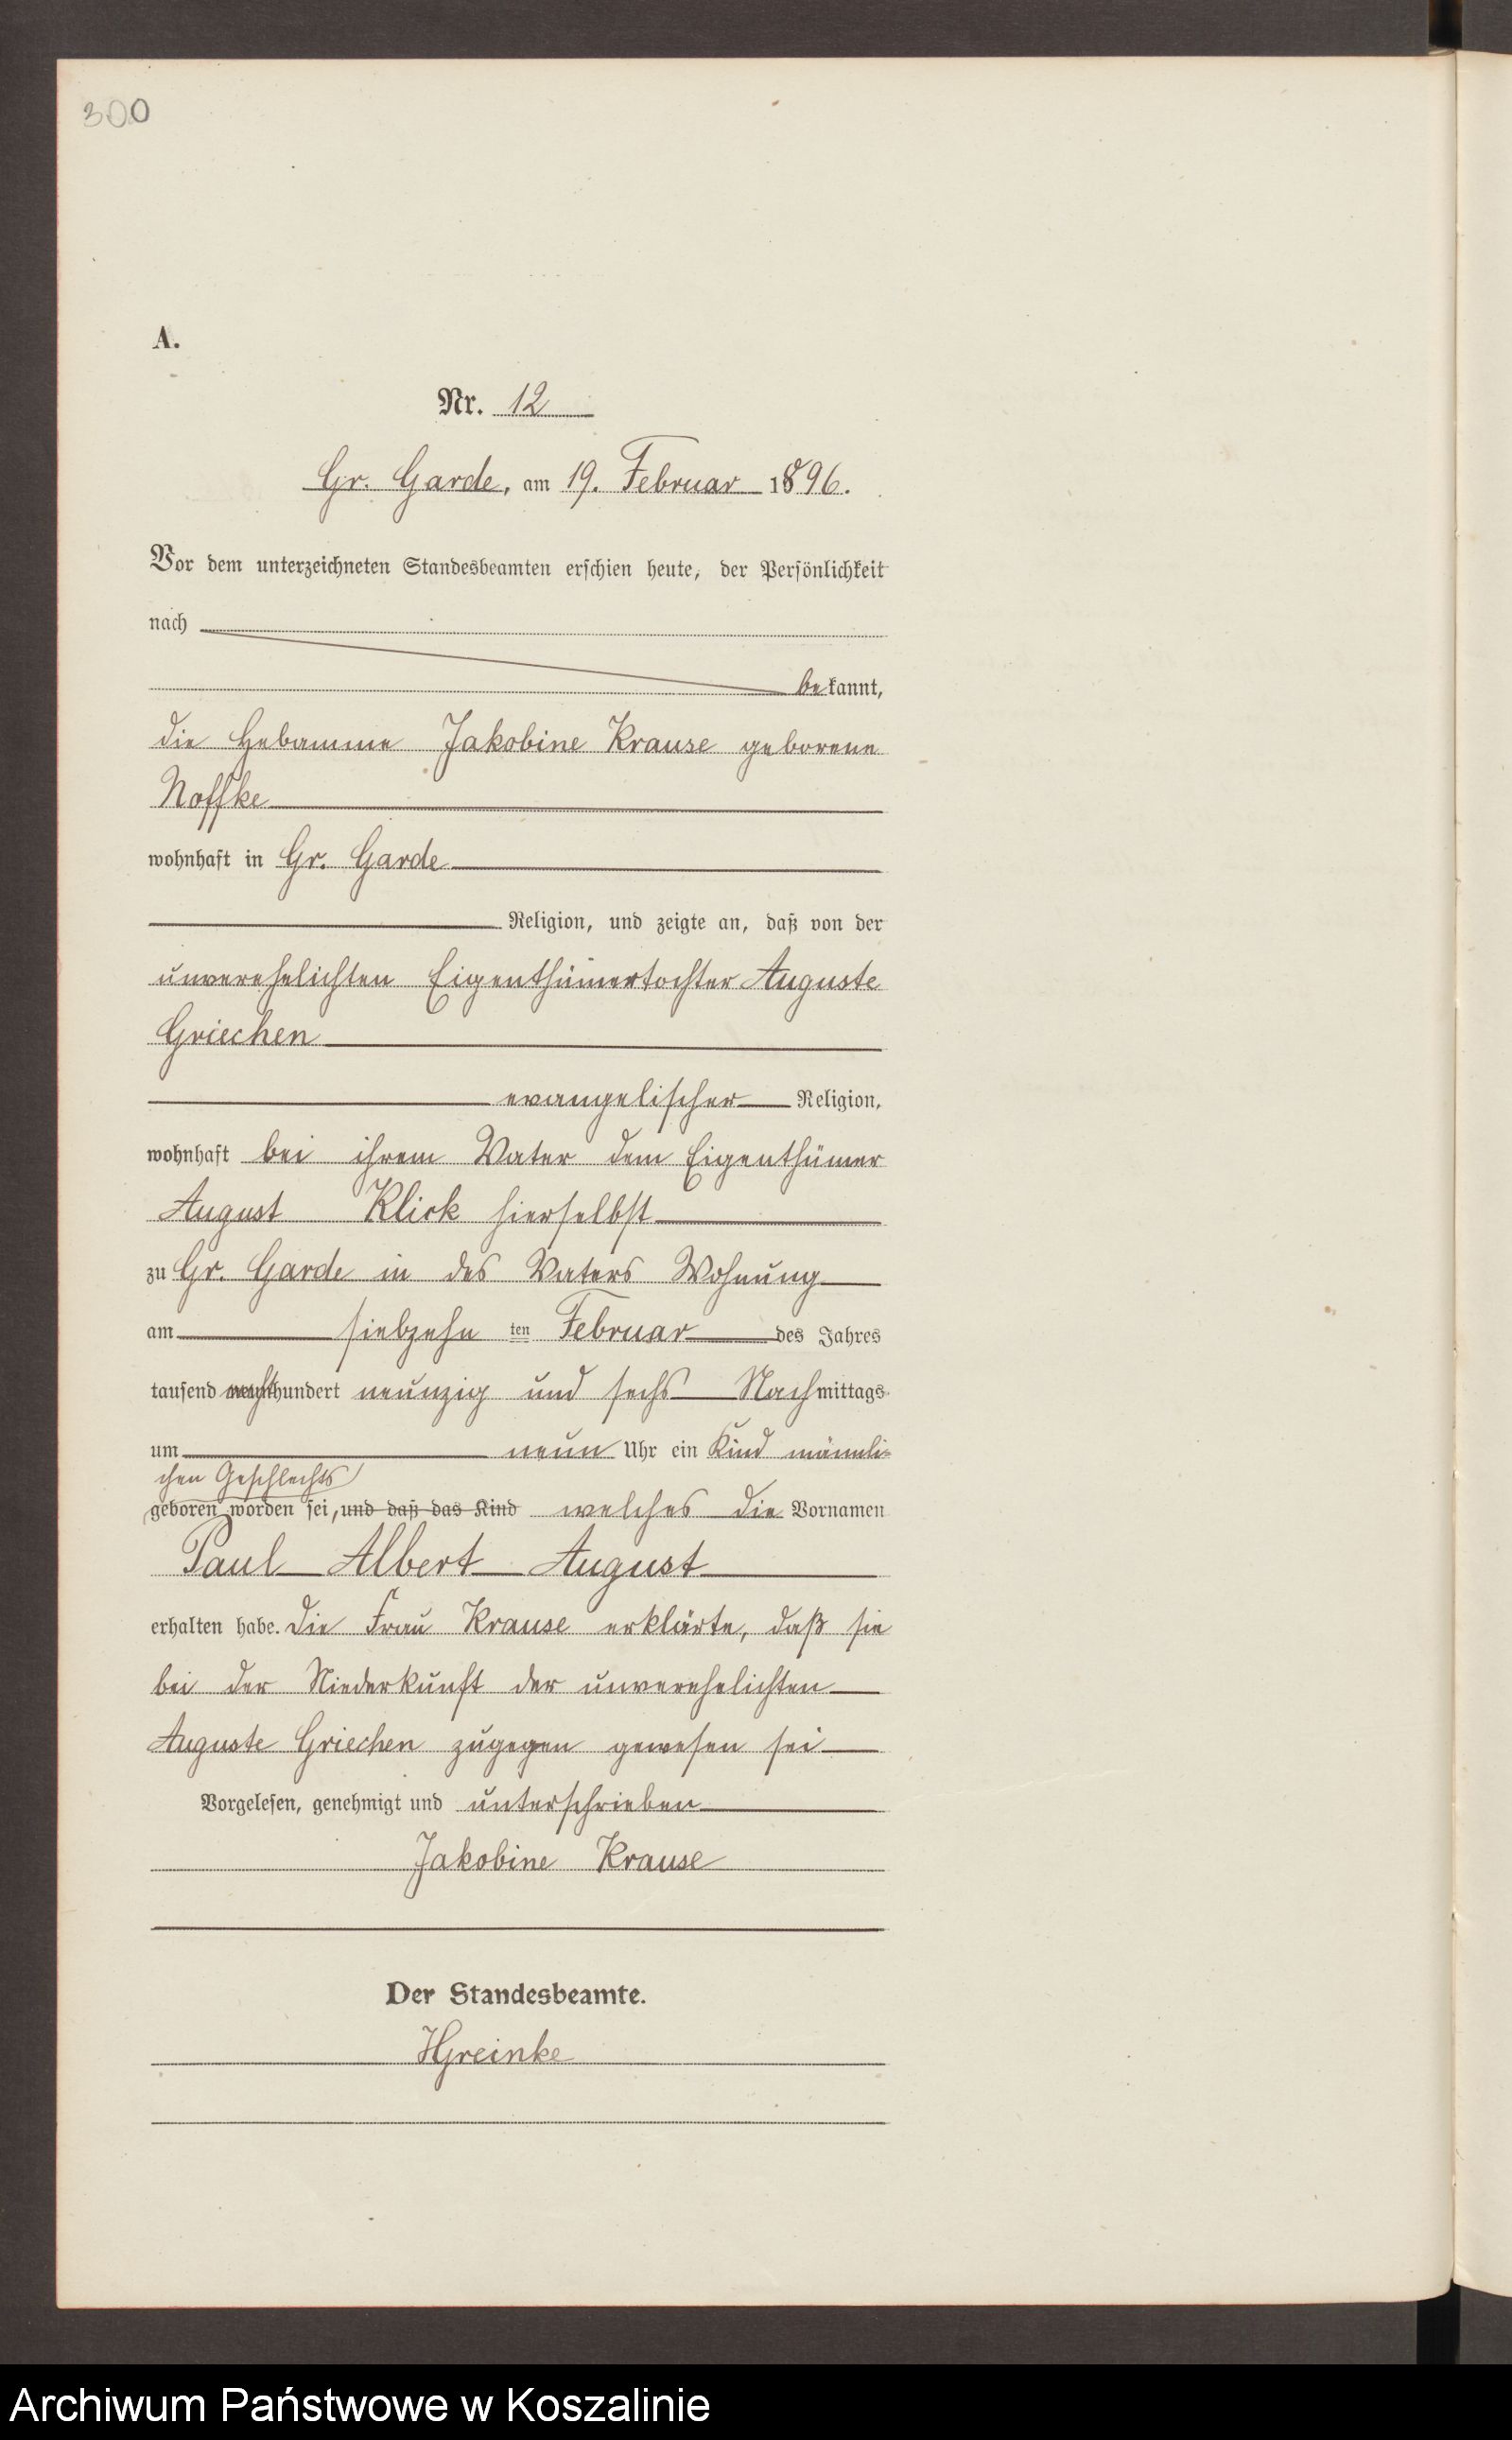 300
A.
Nr. 12
Gr. Garde, am 19. Februar 1896.
Vor dem unterzeichneten Standesbeamten erschien heute, der Persönlichkeit
nach
bekannt,
die Hebamme Jakobine Krause geborene
Noffke
wohnhaft in Gr. Garde
Religion, und zeigte an, daß von der
unverehelichten Eigenthümertochter Auguste
Griechen
evangelischer Religion,
wohnhaft bei ihrem Vater dem Eigenthümer
August Klick hierselbst
zu Gr. Garde in des Vaters Wohnung
am siebzehn ten Februar des Jahres
tausend achthundert neunzig und sechs Nachmittags
um neun Uhr ein Kind männli-
chen Geschlechts
geboren worden sei, und daß das Kind welches die Vornamen
Paul Albert August
erhalten habe. Die Frau Krause erklärte, daß sie
bei der Niederkunft der unverehelichten
Auguste Griechen zugegen gewesen sei
Vorgelesen, genehmigt und unterschrieben
Jakobine Krause
Der Standesbeamte.
HGreinke
Archiwum Państwowe w Koszalinie